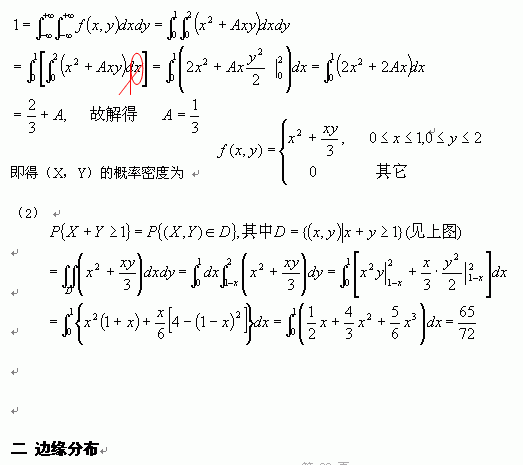 1 = ∫_{-∞}^{+∞}∫_{-∞}^{+∞} f(x, y)dxdy = ∫_0^1∫_0^2 (x² + Axy)dxdy
= ∫_0^1 [∫_0^2 (x² + Axy)dx] = ∫_0^1 (2x² + Ax y²/2 |_0^2)dx = ∫_0^1 (2x² + 2Ax)dx
= 2/3 + A, 故解得 A = 1/3
f(x, y) = { x² + xy/3, 0 ≤ x ≤ 1,0 ≤ y ≤ 2
0 其它
即得（X，Y）的概率密度为
（2）
P{X + Y ≥ 1} = P{(X,Y) ∈ D}, 其中D = {(x, y)|x + y ≥ 1} (见上图)
= ∬_D (x² + xy/3)dxdy = ∫_0^1 dx∫_{1-x}^2 (x² + xy/3)dy = ∫_0^1 [x²y|_{1-x}^2 + x/3 · y²/2 |_{1-x}^2]dx
= ∫_0^1 {x²(1 + x) + x/6 [4 − (1 − x)²]}dx = ∫_0^1 (1/2 x + 4/3 x² + 5/6 x³)dx = 65/72
二 边缘分布